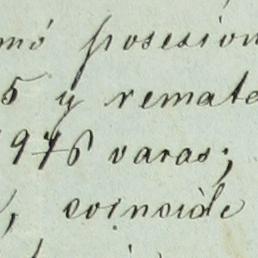 mó posesion
5 y remata
1976 varas;
, coincide